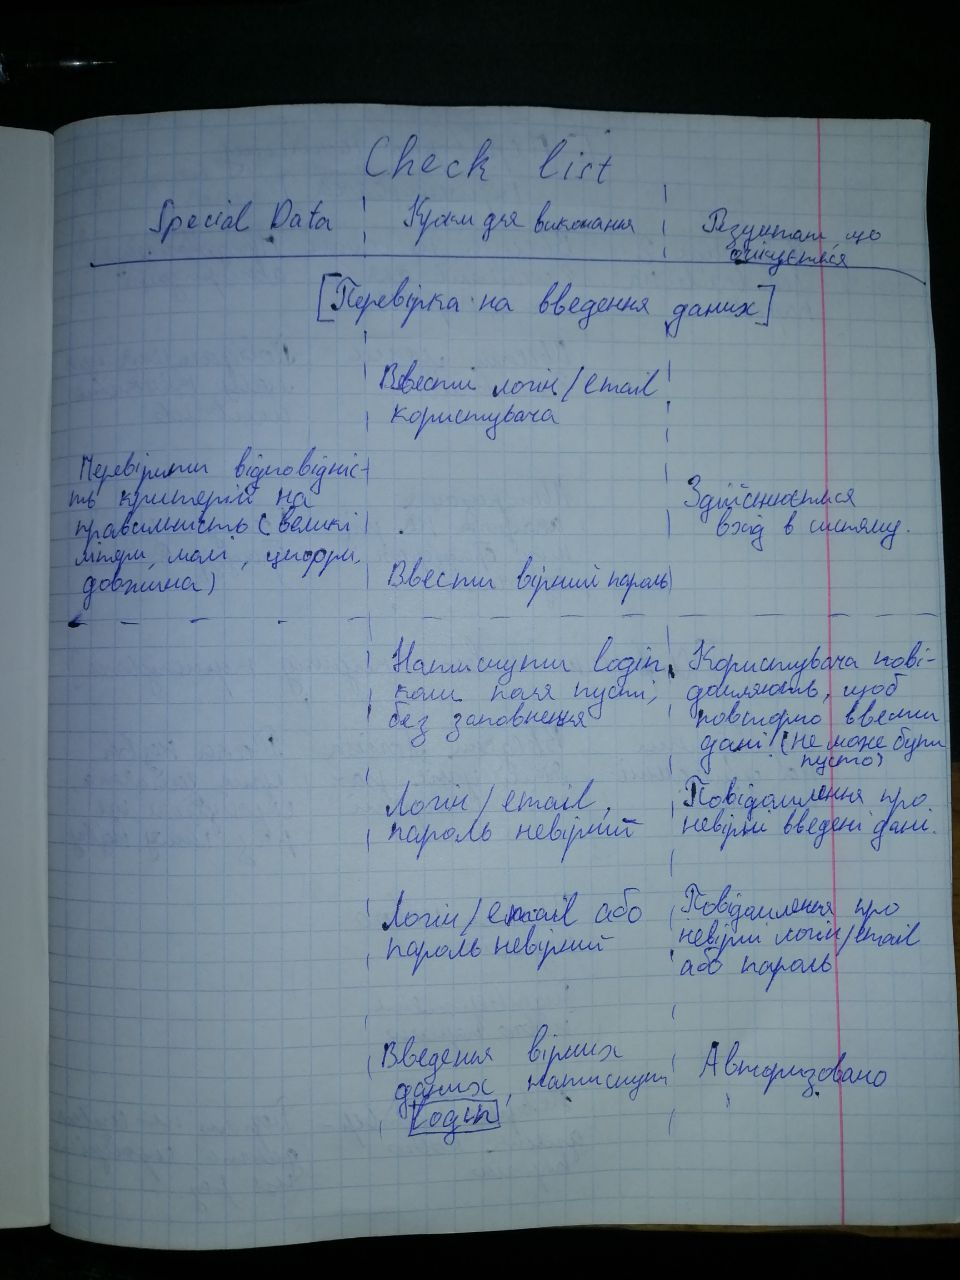 Check list
Special Data
Кроки для виконання
Результат, що
очікується
[Перевірка на введення даних]
Ввести логін/email
користувача
Перевірити відповідніс-
ть критеріїв на
правильність (великі
літери, малі, цифри,
довжина)
Ввести вірний пароль
Здійснюється
вхід в систему.
Натиснути login,
коли поля пусті,
без заповнення
Користувача пові-
домляють, щоб
повторно ввести
дані (не може бути
пусто)
Логін/email,
пароль невірний
Повідомлення про
невірні введені дані.
Логін/email або
пароль невірний
Повідомлення про
невірні логін/email
або пароль
Введення вірних
даних, натиснути
Login
Авторизовано